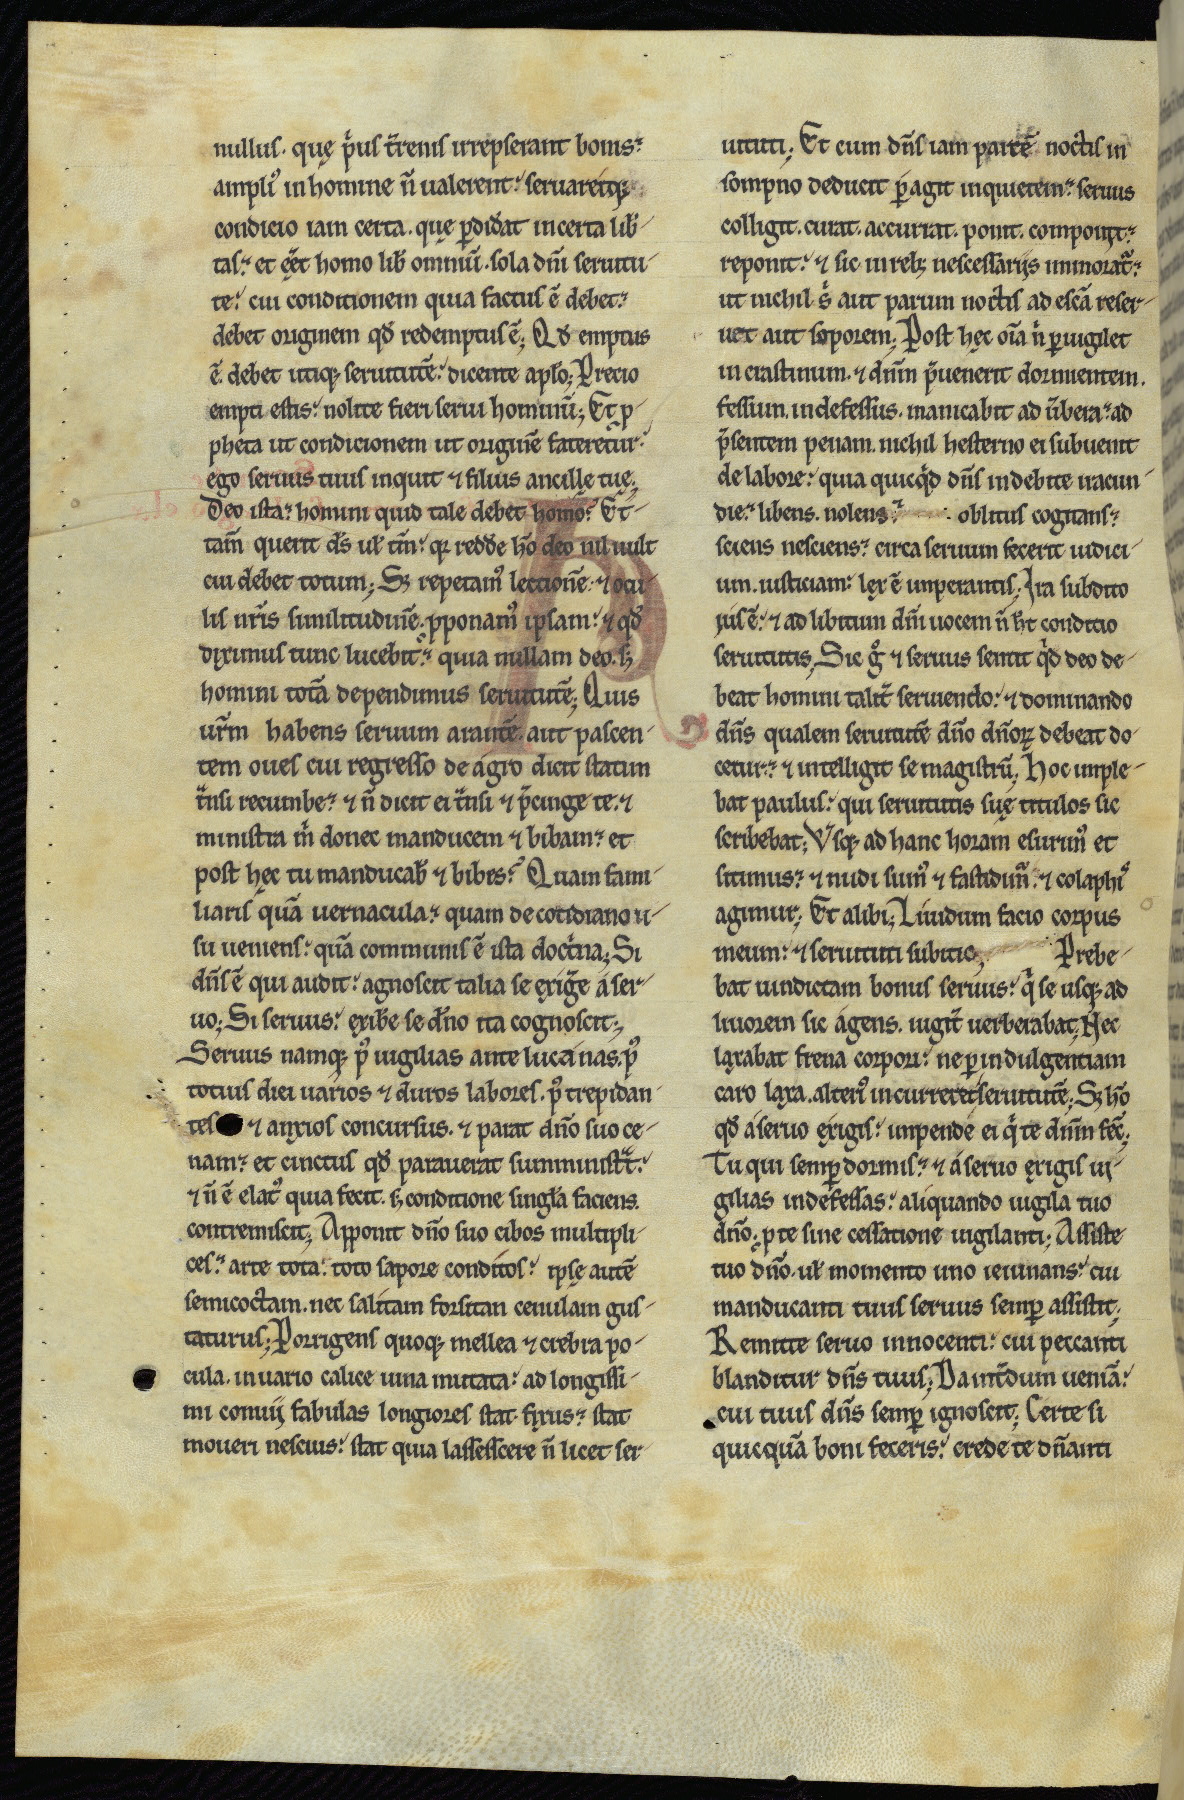 nullus. quę p᷒us t̄renis irrepserant bonis.
ampli᷒ in homine n̄ ualerent. seruaretq;
condicio iam certa. quę ꝑdid̄at incerta lib̄
tas. et eēt homo lib̄ omniū. sola dn̄i seruitu
te. cui conditionem quia factus ē debet.
debet originem qd̄ redemptus ē; Qd̄ emptus
ē. debet utiq; seruitutē. dicente apl̄o; Precio
empti estis. nolite fieri serui hominū; Et p
pheta ut condicionem ut originē fateretur.
ego seruus tuus inquit ⁊ filius ancillę tuę;
Deo ista. homini quid tale debet homo. Et
tam̄ querit d̄s ut̄ tm̄. qꝛ redd̄e hō deo nil uult
cui debet totum; Sꝫ repetam᷒ lectionē. ⁊ ocu
lis ur̄is similitudinē. ꝓponam᷒ ipsam. ⁊ qd̄
diximus tunc lucebit. quia nullam deo. sꝫ
homini totā dependimus seruitutē; Quis
ur̄m habens seruum arantē. aut pascen
tem oues cui regresso de agro dicit statim
t̄nsi recumbe. ⁊ n̄ dicit ei t̄nsi ⁊ p̄cinge te. ⁊
ministra m̄ donec manducem ⁊ bibam. et
post hęc tu manducab̄ ⁊ bibes. Quam fami
liaris quā uernacula. quam de cotidiano u
su ueniens. quā communis ē ista doct̄na; Si
dn̄s ē qui audit. agnoscit talia se exiḡe a ser
uo; Si seruus. exibe se dn̄o ita cognoscit;
Seruus namq; p᷒ uigilias antelucanas. p᷒
totius diei uarios ⁊ duros labores. p᷒ trepidan
tes ⁊ anxios concursus. ⁊ parat dn̄o suo ce
nam. et cinctus qd̄ parauerat summinist̄t.
⁊ n̄ ē elat᷒ quia fecit. sꝫ conditione singl̄a faciens.
contremiscit; Apponit dn̄o suo cibos multipli
ces. arte tota. toto sapore conditos. ipse autē
semicoctam. nec salitam forsitan cenulam gus
taturus; Porrigens quoq; mellea ⁊ crebra po
cula. in uario calice uina mutata. ad longissi
mi conuiij fabulas longiores stat fixus. stat
moueri nescius. stat quia lassescere n̄ licet ser
uituti; Et cum dn̄s iam partē noctis in
sompno deducit ꝑagit inquietem. seruus
colligit. curat. accurrat. ponit. componit.
reponit. ⁊ sic in rebꝫ nescessarijs inmorat᷑.
ut nichil s᷒ aut parum noctis ad escā reser
uet aut soporem; Post hęc oīa n̄ ꝑuigilet
in crastinum. ⁊ dn̄m p̄uenerit dormientem.
fessum. indefessus. manicabit ad ūbera. ad
p̄sentem penam. nichil hesterno ei subuenit
de labore. quia quicq̄d dn̄s indebite iracun
die. libens. nolens. oblitus cogitans.
sciens nesciens. circa seruum fecerit iudici
um. iusticiam. lex ē imperantis; Ira subdito
ius ē. ⁊ ad libitum dn̄i uocem n̄ ht̄ conditio
seruitutis; Sic g̊ ⁊ seruus sentit q̄d deo de
beat homini talit̄ seruiendo. ⁊ dominando
dn̄s qualem seruitutē dn̄o dn̄oꝝ debeat do
cetur. ⁊ intelligit se magistrū; Hoc imple
bat paulus. qui seruitutis suę titulos sic
scribebat; Vsq; ad hanc horam esurim᷒ et
sitimus. ⁊ nudi sum᷒ ⁊ fastidim᷒. ⁊ colaphi᷒
agimur; Et alibi; Liuidum facio corpus
meum. ⁊ seruituti subitio; Prebe
bat uindictam bonus seruus. q̄ se usq; ad
liuorem sic agens. iugit̄ uerberabat; Nec
laxabat frena corpori. ne ꝑ indulgentiam
caro laxa. alteri᷒ incurreret seruitutē; Sꝫ hō
qd̄ a seruo exigis. impende ei q̄ te dn̄m fec̄;
Tu qui semꝑ dormis. ⁊ a seruo exigis ui
gilias indefessas. aliquando uigila tuo
dn̄o. ꝓ te sine cessatione uigilanti; Assiste
tuo dn̄o. ut̄ momento uno ieiunans. cui
manducanti tuus seruus semꝑ assistit;
Remitte seruo innocenti. cui peccanti
blanditur dn̄s tuus; Da int̄dum ueniā.
cui tuus dn̄s semꝑ ignoscit; Certe si
quicquā boni feceris. crede te dn̄anti